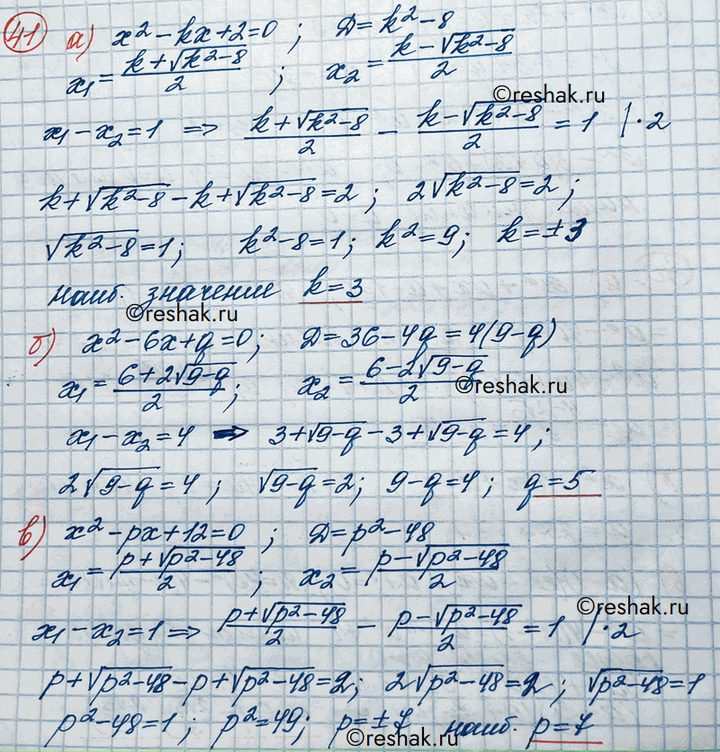 41 а) x² - kx + 2 = 0 ; Д = k² - 8
x₁ = (k + √(k² - 8))/2 ; x₂ = (k - √(k² - 8))/2
©reshak.ru
x₁ - x₂ = 1 ⇒ (k + √(k² - 8))/2 - (k - √(k² - 8))/2 = 1 | · 2
k + √(k² - 8) - k + √(k² - 8) = 2 ; 2√(k² - 8) = 2 ;
√(k² - 8) = 1 ; k² - 8 = 1 ; k² = 9 ; k = ±3
наиб. значение k = 3
©reshak.ru
б) x² - 6x + q = 0 ; Д = 36 - 4q = 4(9 - q)
x₁ = (6 + 2√(9 - q))/2 ; x₂ = (6 - 2√(9 - q))/2
©reshak.ru
x₁ - x₂ = 4 ⇒ 3 + √(9 - q) - 3 + √(9 - q) = 4 ;
2√(9 - q) = 4 ; √(9 - q) = 2 ; 9 - q = 4 ; q = 5
в) x² - px + 12 = 0 ; Д = p² - 48
x₁ = (p + √(p² - 48))/2 ; x₂ = (p - √(p² - 48))/2
©reshak.ru
x₁ - x₂ = 1 ⇒ (p + √(p² - 48))/2 - (p - √(p² - 48))/2 = 1 | · 2
p + √(p² - 48) - p + √(p² - 48) = 2 ; 2√(p² - 48) = 2 ; √(p² - 48) = 1
p² - 48 = 1 ; p² = 49 ; p = ±7 наиб. p = 7
©reshak.ru